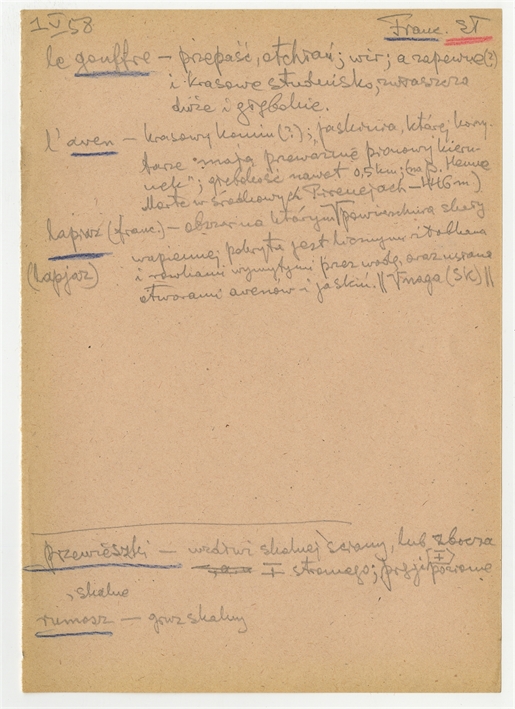 1 V 58 Franc. ST
le gouffre – przepaść, otchłań; wir; a zapewne (?)
i krasowe studnisko, zwłaszcza
duże i głębokie.
l'aven – krasowy komin (?); jaskinia, której kory-
tarze "mają przeważnie pionowy kieru-
nek"; głębokość nawet 0,5 km; (np. Henne
Morte w środkowych Pirenejach – 446 m)
lapiaz (franc) – obszar na którym powierzchnia skały
wapiennej, pokryta jest licznymi żłobkami
(lapjaz) i rowkami wymytymi przez wodę, oraz usiana
otworami avenów i jaskiń.
przewieszki – skalnej ściany, lub zbocza
± stromego;
skalne
rumosz – gruz skalny